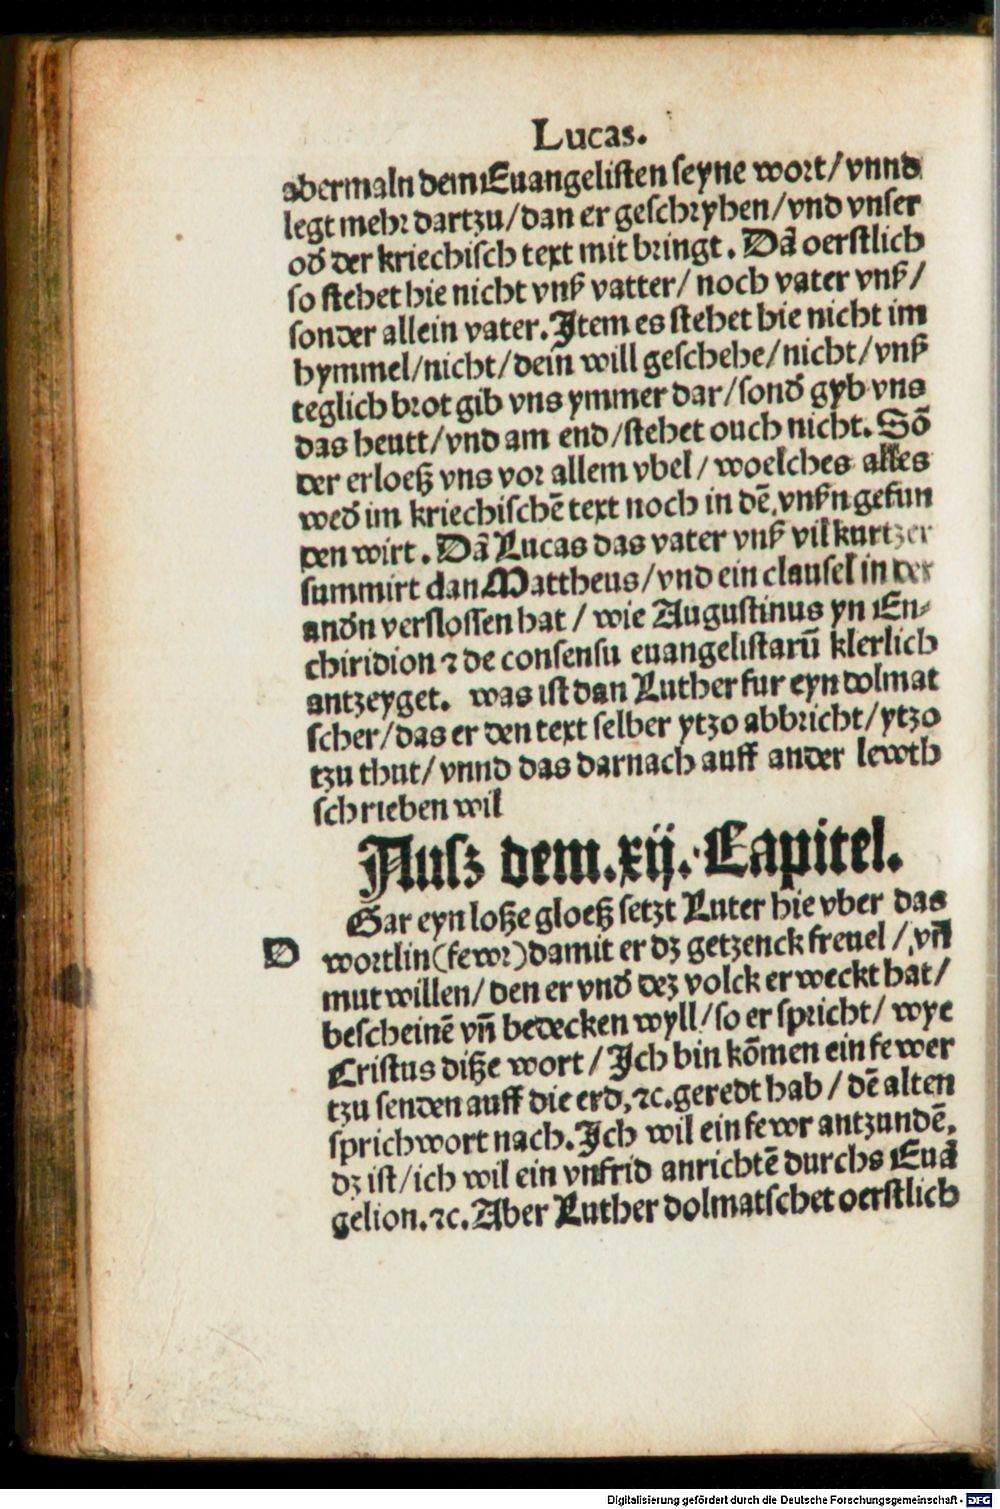 Lucas.
abermaln dem Euangelisten seyne wort/ vnnd
legt mehr dartzu/ dan er geschryben/ vnd vnser
od̄ der kriechisch text mit bringt. Dā oerstlich
so stehet hie nicht vnß vatter/ noch vater vnß/
sonder allein vater. Item es stehet hie nicht im
hymmel/ nicht/ dein will geschehe/ nicht/ vnß
teglich brot gib vns ymmer dar/ sond̄ gyb vns
das heutt/ vnd am end/ stehet ouch nicht. Sō
der erloeß vns vor allem vbel/ woelches alles
wed̄ im kriechischē text noch in dē vnßn gefun
den wirt. Dā Lucas das vater vnß vil kurtzer
summirt dan Mattheus/ vnd ein clausel in der
and̄n verslossen hat/ wie Augustinus yn En⸗
chiridion ⁊ de consensu euangelistarū klerlich
antzeyget. was ist dan Luther fur eyn dolmat
scher/ das er den text selber ytzo abbricht/ ytzo
tzu thut/ vnnd das darnach auff ander lewth
schrieben wil
Ausz dem .xij. Capitel.
Gar eyn loße gloeß setzt Luter hie vber das
D
wortlin (fewr) damit er dz getzenck freuel/ vn̄
mut willen/ den er vnd̄ dez volck erweckt hat/
bescheinē vn̄ bedecken wyll/ so er spricht/ wye
Cristus diße wort/ Ich bin kōmen ein fewer
tzu senden auff die erd, ⁊c. geredt hab/ dē alten
sprichwort nach. Ich wil ein fewr antzundē,
dz ist/ ich wil ein vnfrid anrichtē durchs Euā
gelion. ⁊c. Aber Luther dolmatschet oerstlich
Digitalisierung gefördert durch die Deutsche Forschungsgemeinschaft - DFG